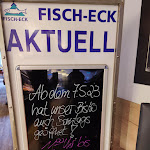 FISCH-ECK
FISCH-ECK
AKTUELL
Ab dem 7.5.23
hat unser Bistro
auch Sonntags
geöffnet